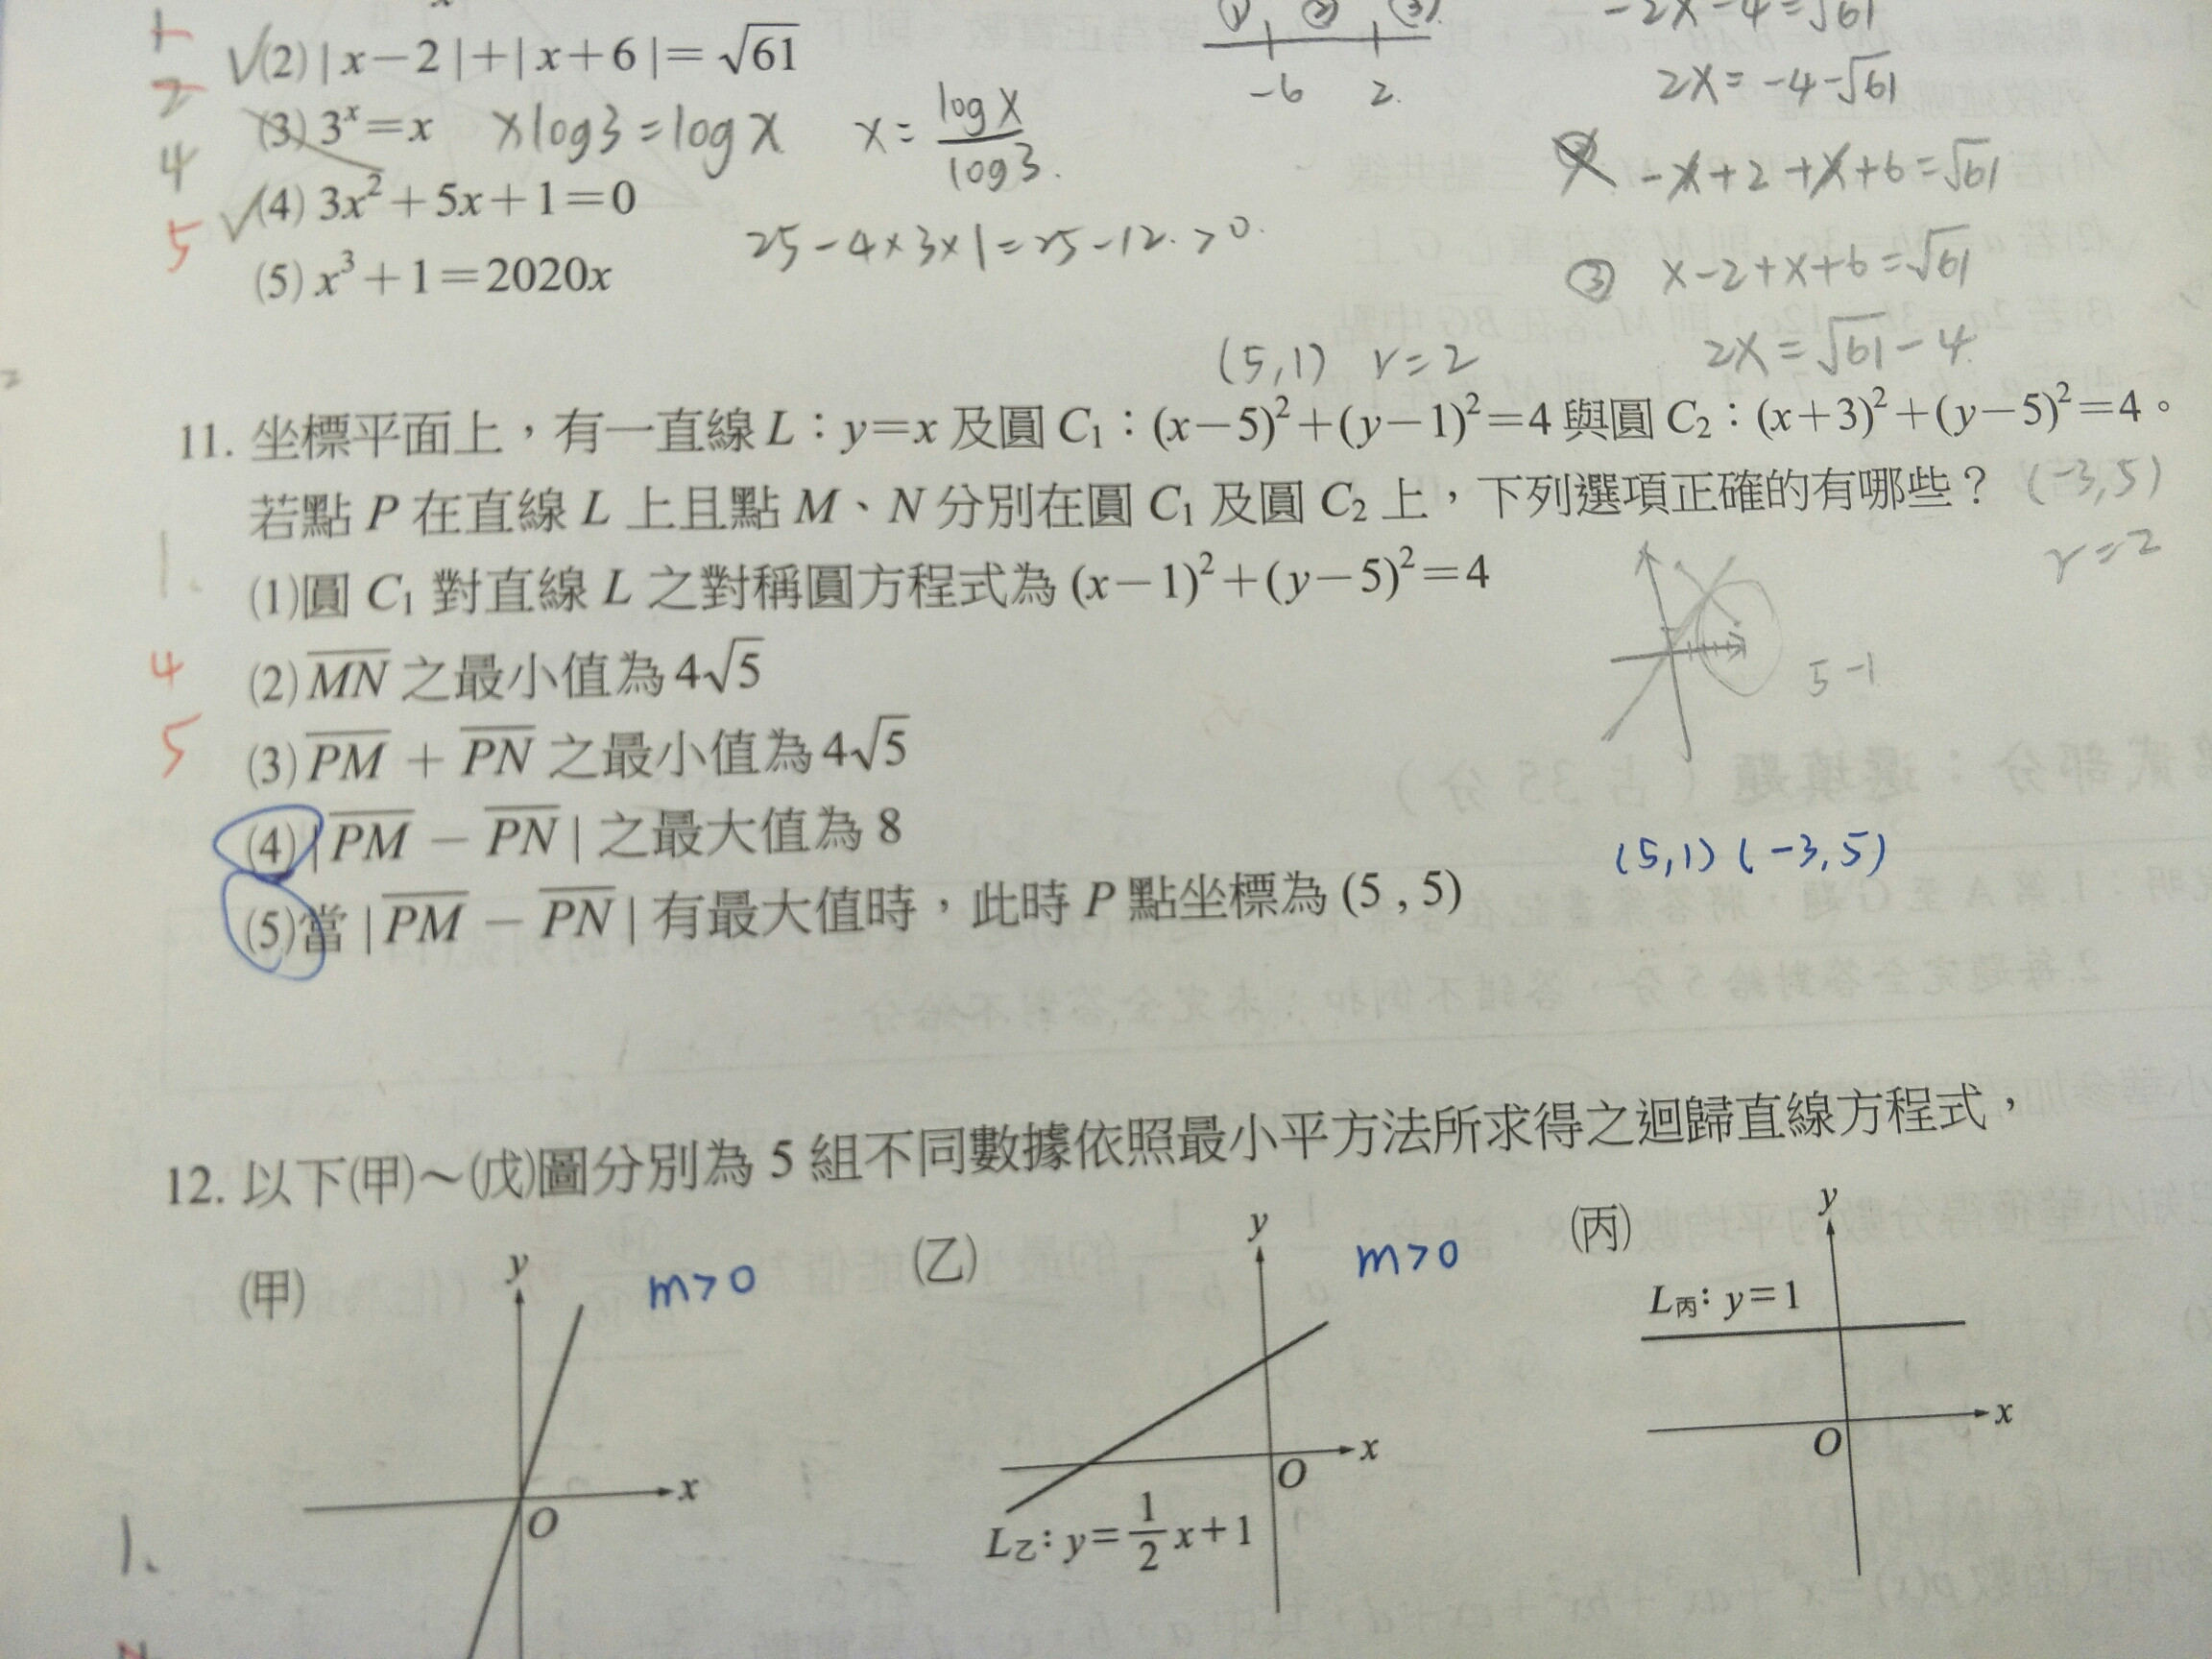 1
2
4
5
(2) | x－2 |＋| x＋6 |＝√61
(3) 3ˣ＝x
x log3 = log x
x = log x / log 3.
(4) 3x²＋5x＋1＝0
25－4×3×1＝25－12 > 0.
(5) x³＋1＝2020x
① ② ③
-6 2.
-2x-4=√61
2x = -4-√61
-x+2+x+6=√61
③ x-2+x+6=√61
2x=√61-4.
(5,1) r=2
11. 坐標平面上，有一直線 L：y＝x 及圓 C₁：(x－5)²＋(y－1)²＝4 與圓 C₂：(x＋3)²＋(y－5)²＝4。
若點 P 在直線 L 上且點 M、N 分別在圓 C₁ 及圓 C₂ 上，下列選項正確的有哪些？
(-3,5)
r=2
1.
(1)圓 C₁ 對直線 L 之對稱圓方程式為 (x－1)²＋(y－5)²＝4
4
(2) M̅N̅ 之最小值為 4√5
5-1
5
(3) P̅M̅ ＋ P̅N̅ 之最小值為 4√5
(4) | P̅M̅ － P̅N̅ | 之最大值為 8
(5,1) (-3,5)
(5)當 | P̅M̅ － P̅N̅ | 有最大值時，此時 P 點坐標為 (5 , 5)
12. 以下(甲)～(戊)圖分別為 5 組不同數據依照最小平方法所求得之迴歸直線方程式，
(甲)
y
m>0
x
O
(乙)
y
m>0
x
O
L乙：y＝1/2 x＋1
(丙)
y
L丙：y＝1
x
O
1.